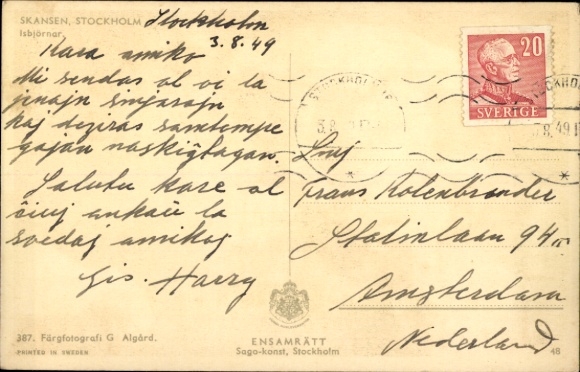 SKANSEN, STOCKHOLM
Isbjörnar
Stockholm
3.8.49
Kara amiko
Mi sendas al vi la
jenajn
kaj deziras samtempe
gajan naskigtagan.
Salutu kore al
ĉiuj ankaŭ la
svedaj amikoj
Gis. Harry
20
SVERIGE
STOCKHOLM
Frans Kolenbrander
Stalinlaan 94 III
Amsterdam
Nederland
387. Färgfotografi G Algård.
PRINTED IN SWEDEN
ENSAMRÄTT
Sago-konst, Stockholm
48